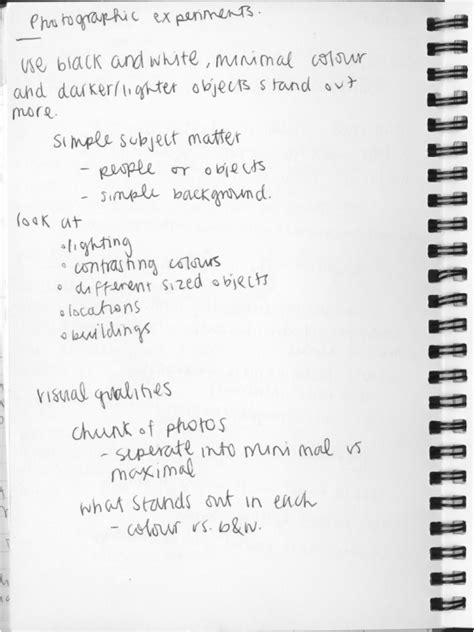 Photographic experiments.
use black and white, minimal colour
and darker/lighter objects stand out
more.
simple subject matter
- people or objects
- simple background.
look at
• lighting
• contrasting colours
• different sized objects
• locations
• buildings
visual qualities
chunk of photos
- seperate into minimal vs
maximal
what stands out in each
- colour vs. b&w.